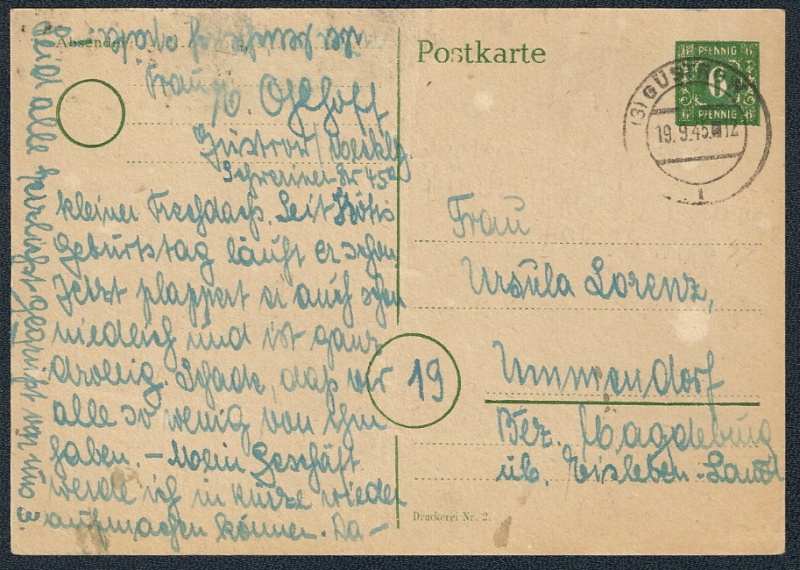 Absender:
Frau
A. Ohlhoff
Güstrow/Mecklg.
kleiner Frechdachs. Seit
Geburtstag läuft er schon.
Jetzt plappert er auch schon
niedlich und ist ganz
drollig. Schade, daß wir
alle so wenig von ihm
haben. – Mein Geschäft
werde ich in Kürze wieder
aufmachen können. Da–
Seid alle herzlichst gegrüßt von uns 3.
Postkarte
6 PFENNIG 6
6
6 PFENNIG 6
(3) GÜSTROW
19.9.45. 12
1
Frau
Ursula Lorenz,
19
Ummendorf
Bez. Magdeburg
üb. Eisleben-Land
Druckerei Nr. 2.